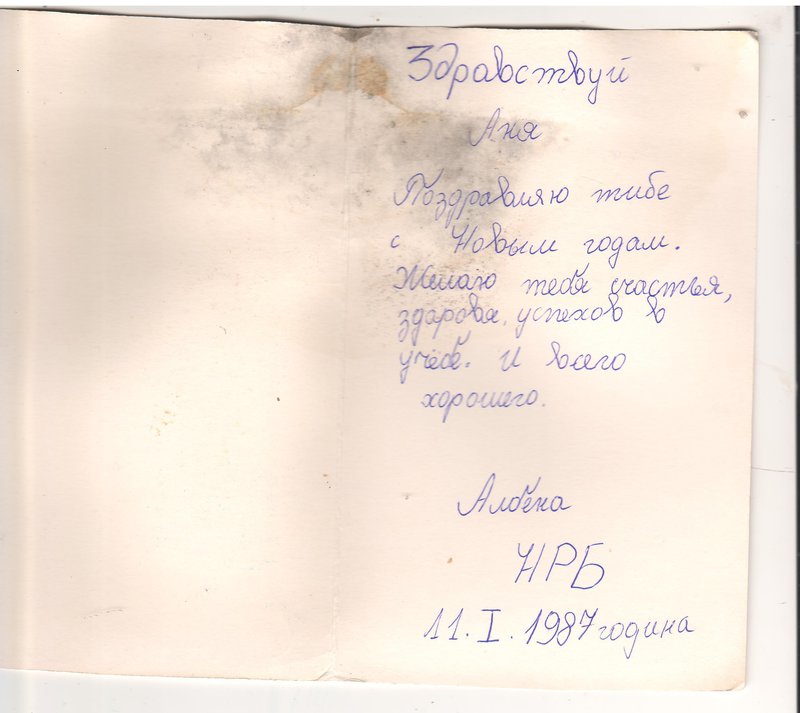 Здравствуй
Аня
Поздравляю тибе
с Новым годам.
Желаю тебя счастья,
здаровя, успехов в
учёбе. И всего
хорошего.
Албена
НРБ
11. I. 1987 година